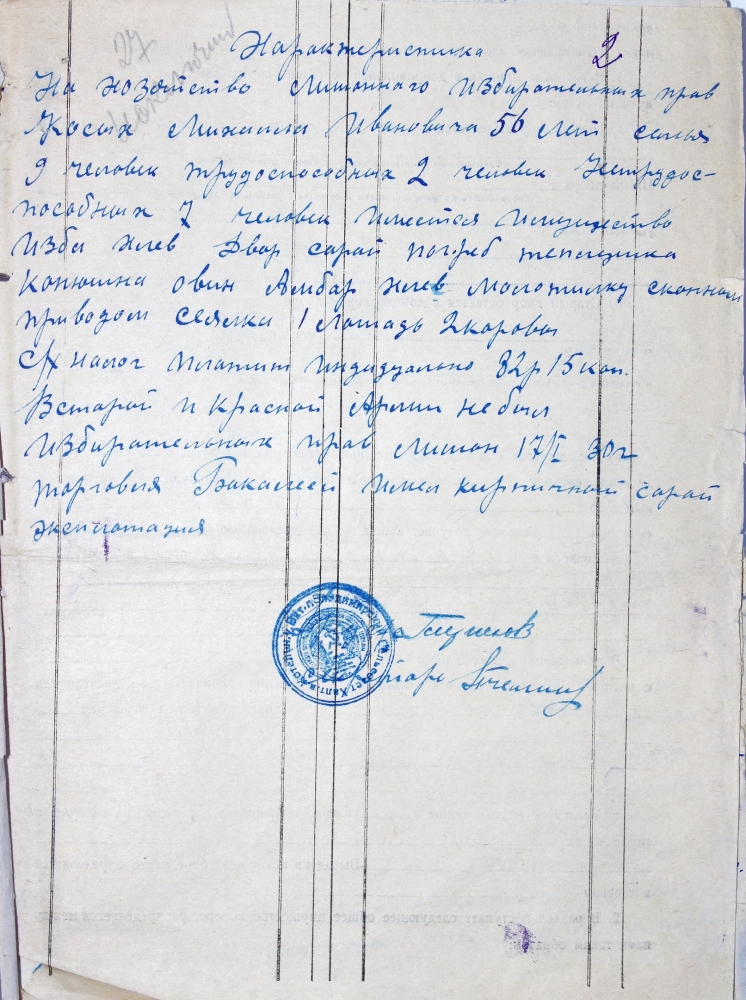 27
Характеристика 2
На хозяйство лишонного избирательных прав
Косых Михаила Ивановича 56 лет семья
9 человек трудоспособных 2 человек нетрудос-
пособных 7 человек имеется имущество
изба хлев двор сарай погреб
конюшна овин Амбар хлев молотилку сконным
приводом сеялка 1 лошадь 2 коровы
с/х налог платит индидуально 82р 15 коп.
Встарой и Красной Армии небыл
избирательных прав лишон 17/I 30г
торговля Бакалеей имел кирпичный сарай
эксплотация